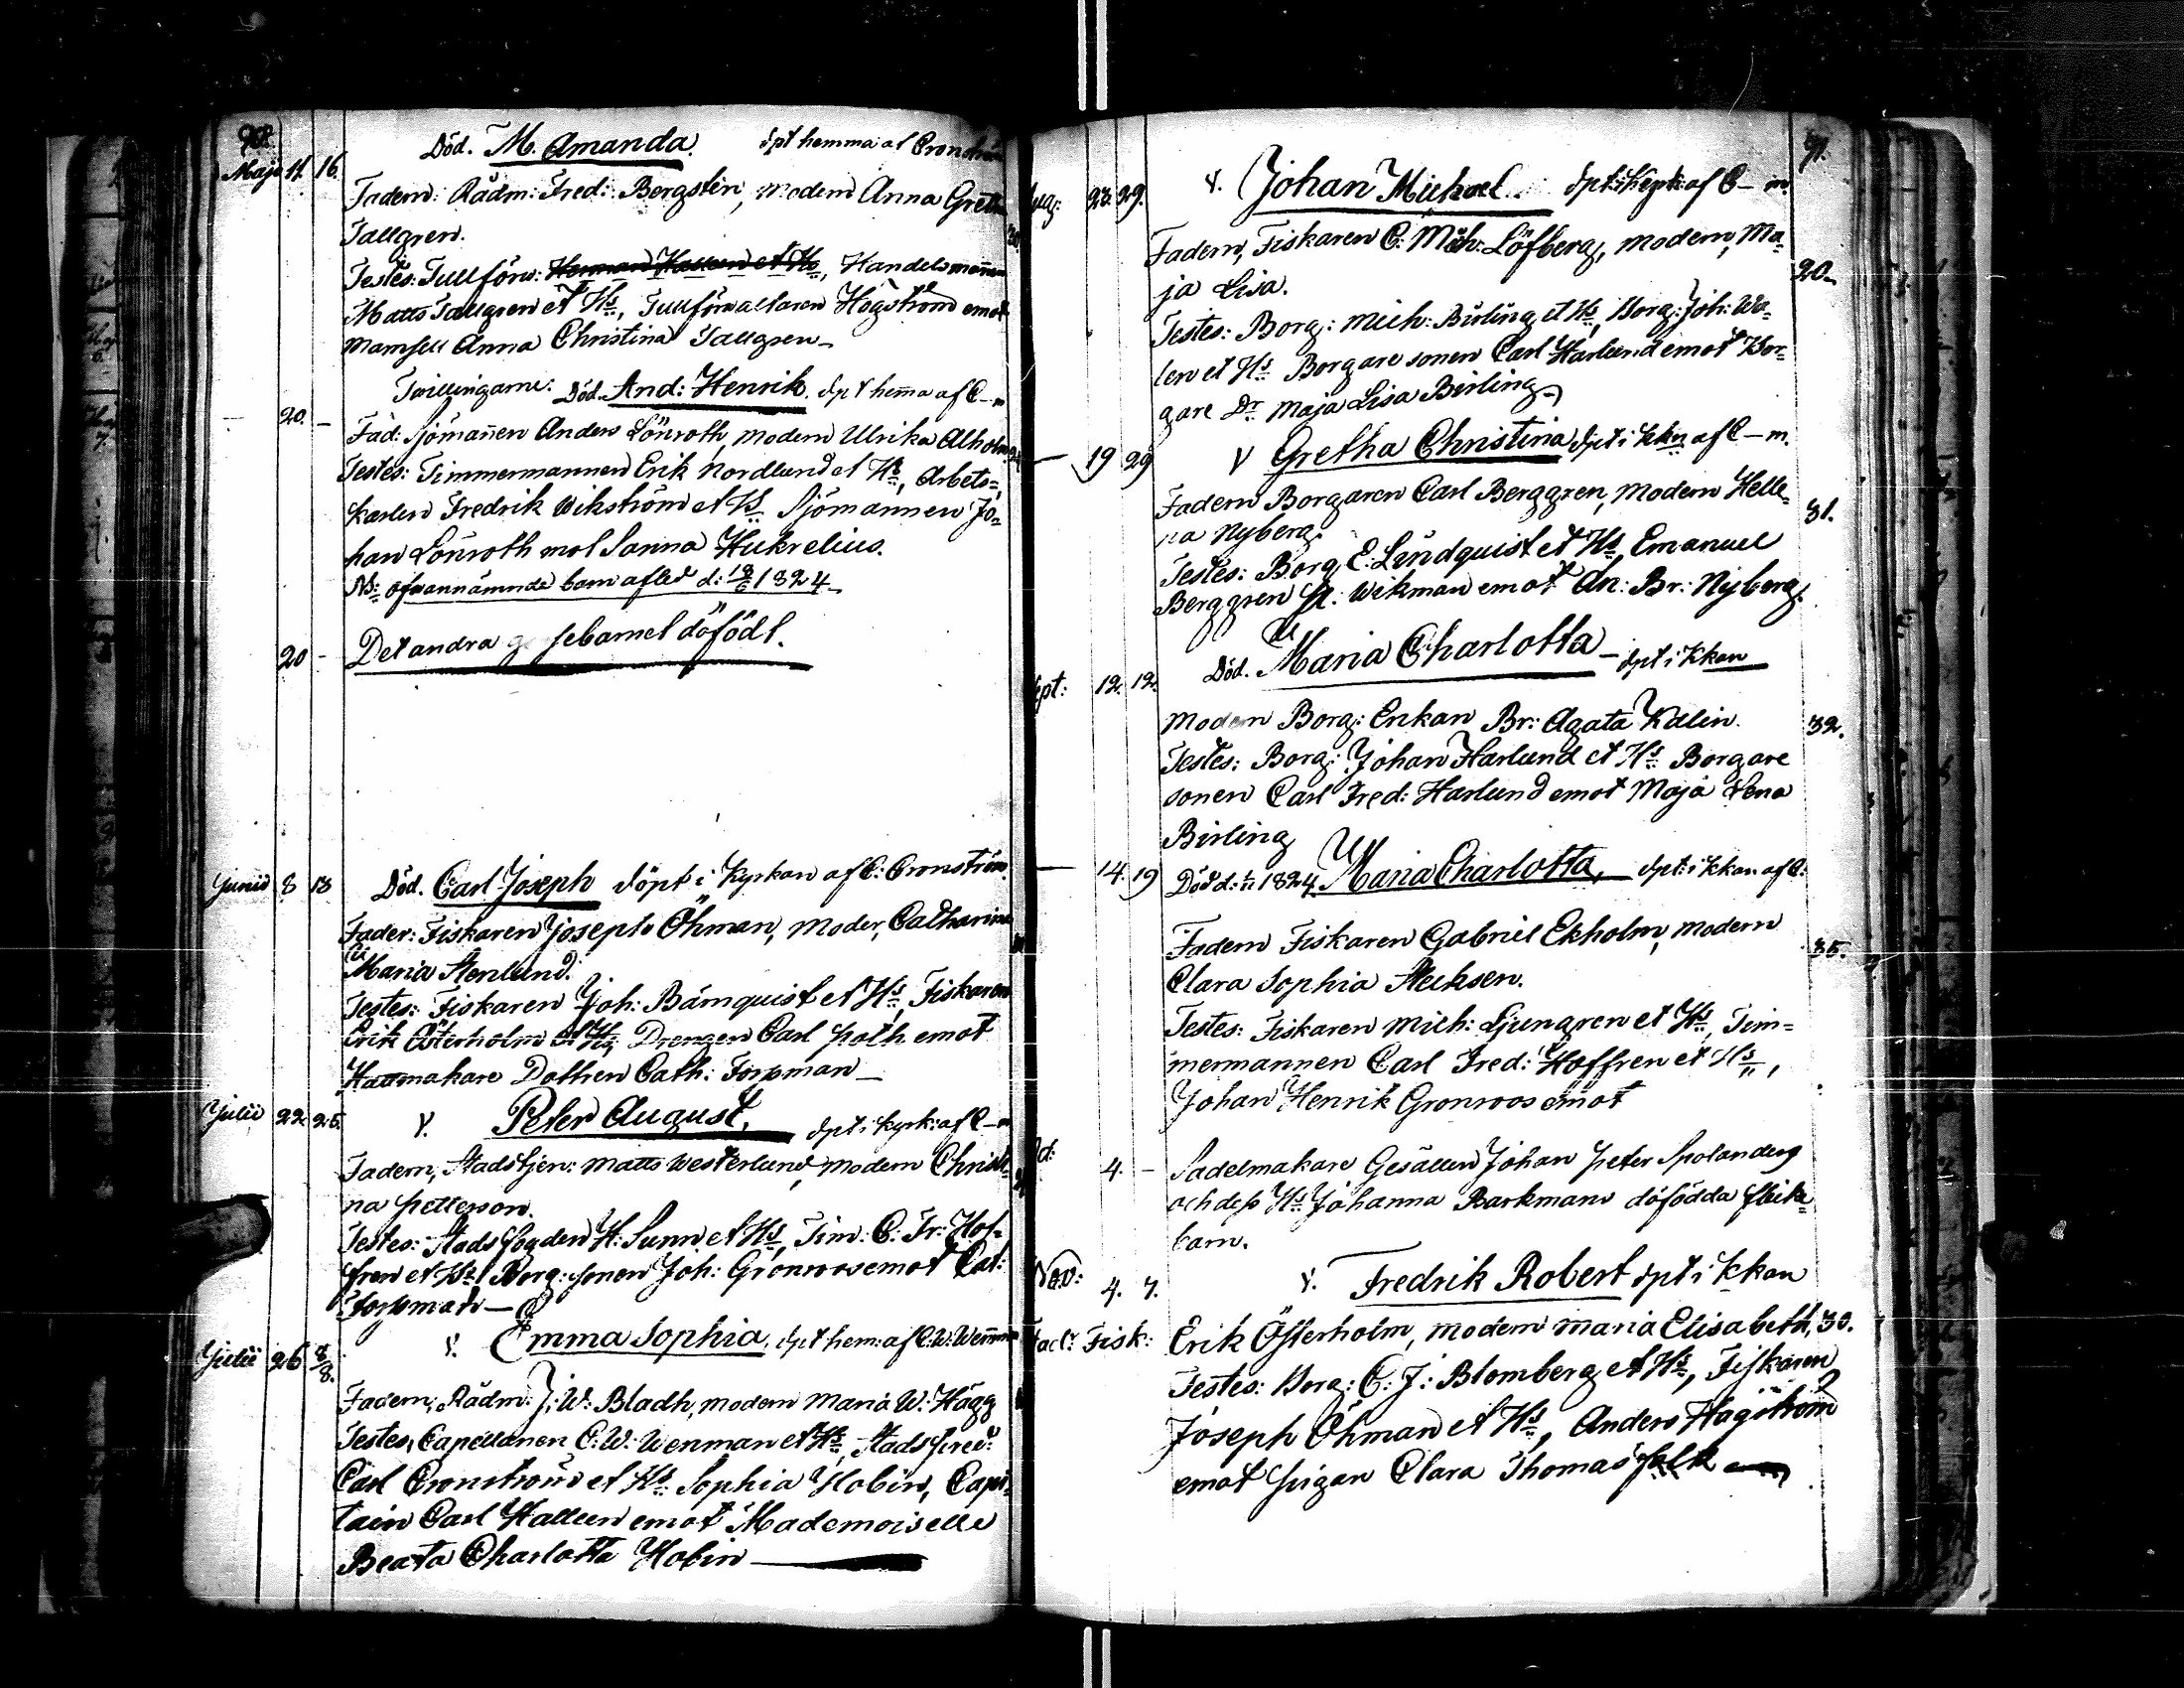 90.
Död. M. Amanda. dpt hemma af Cronström
Maji 11. 16.
Fadern: Rådm: Fred: Bergsten, modern Anna Greta
Tallgren.
Testes: Tullförv: Herman Hallen et Hs, Handelsmannen
Matts Tallgren et Hs, Tullförvaltaren Högström emot
Mamsell Anna Christina Tallgren
Tvillingarne. Död. And: Henrik. dpt hema af C—m
20. –
Fad: Sjömannen Anders Lönroth, modern Ulrika Alholm
Testes: Timmermannen Erik Nordlund et Hs, Arbets-
karlen Fredrik Wikström et Hs Sjömannen Jo-
han Lönroth mot Sanna Hukrelius.
NB: ofvannämnde barn afled d: 18/6 1824
20 – Det andra gossebarnet döfödt.
Junii 8 13 Död. Carl Joseph döpt i Kyrkan af C: Cronström.
Fader: Fiskaren Joseph Öhman, Moder, Catharina
Maria Stenlund.
Testes: Fiskaren Joh: Bärnquist et Hs, Fiskaren
Erik Österholm et Hs, Drengen Carl Poth emot
Hattmakare Dottren Cath: Forsman
Julii 22 25. V. Peter August, dpt i kyrk: af C—m
Fadern, Stadstjen: Matts Westerlund, modern Christi-
na Petterson.
Testes: Stadsfogden H: Sunn et Hs, Tim: C: Fr: Hof-
fren et Hs, Borg: sonen Joh: Grönroos emot Cat:
Forsman
Julii 26 8/8. V. Emma Sophia, dpt hem: af C: W: Wenman
Fadern, Rådm: J: W: Bladh, modern Maria W: Hägg
Testes, Capellanen C: W: Wenman et Hs, Stadspred:
Carl Cronström et Hs Sophia Hobin, Capi-
tain Carl Halleen emot Mademoiselle
Beata Charlotta Hobin
91.
Aug: 23. 29. V. Johan Michael. dpt i kyrk: af C—m.
Fadern, Fiskaren C: Mich: Löfberg, modern, Ma-
20.
ja Lisa.
Testes: Borg: Mich: Birling et Hs, Borg: Joh: Wa-
len et Hs Borgare sonen Carl Harlund emot Bor-
gare Dr Maja Lisa Birling
19 29 V Gretha Christina dpt i kkn af C—m.
Fadern Borgaren Carl Berggren, modern Helle-
31.
na Nyberg.
Testes: Borg E: Lindquist et Hs, Emanuel
Berggren Wikman emot An: Br: Nyberg.
Sept: 12. 12. Död. Maria Charlotta – dpt i kkan
Modern Borg: Enkan Br: Agata Kalin.
32.
Testes: Borg: Johan Harlund et Hs Borgare
sonen Carl Fred: Harlund emot Maja Lena
Birling
14. 19 Död d: 1824. Maria Charlotta, dpt i kkan af C:
Fadern Fiskaren Gabriel Ekholm, modern
35.
Clara Sophia Stecksen.
Testes: Fiskaren Mich: Ljungren et Hs, Tim=
mermannen Carl Fred: Hoffren et Hs,
Johan Henrik Grönroos emot
4. – Sadelmakare Gesällen Johan Peter Spolanders
och dess Hs Johanna Barkmans döfödda flicke-
barn.
Nov: 4. 7. V. Fredrik Robert dpt i kkan
Fad: Fisk: Erik Österholm, modern Maria Elisabeth, 30.
Testes: Borg: C: J: Blomberg et Hs, Fiskaren
Joseph Öhman et Hs, Anders Hagström
emot Pigan Clara Thomasfolk